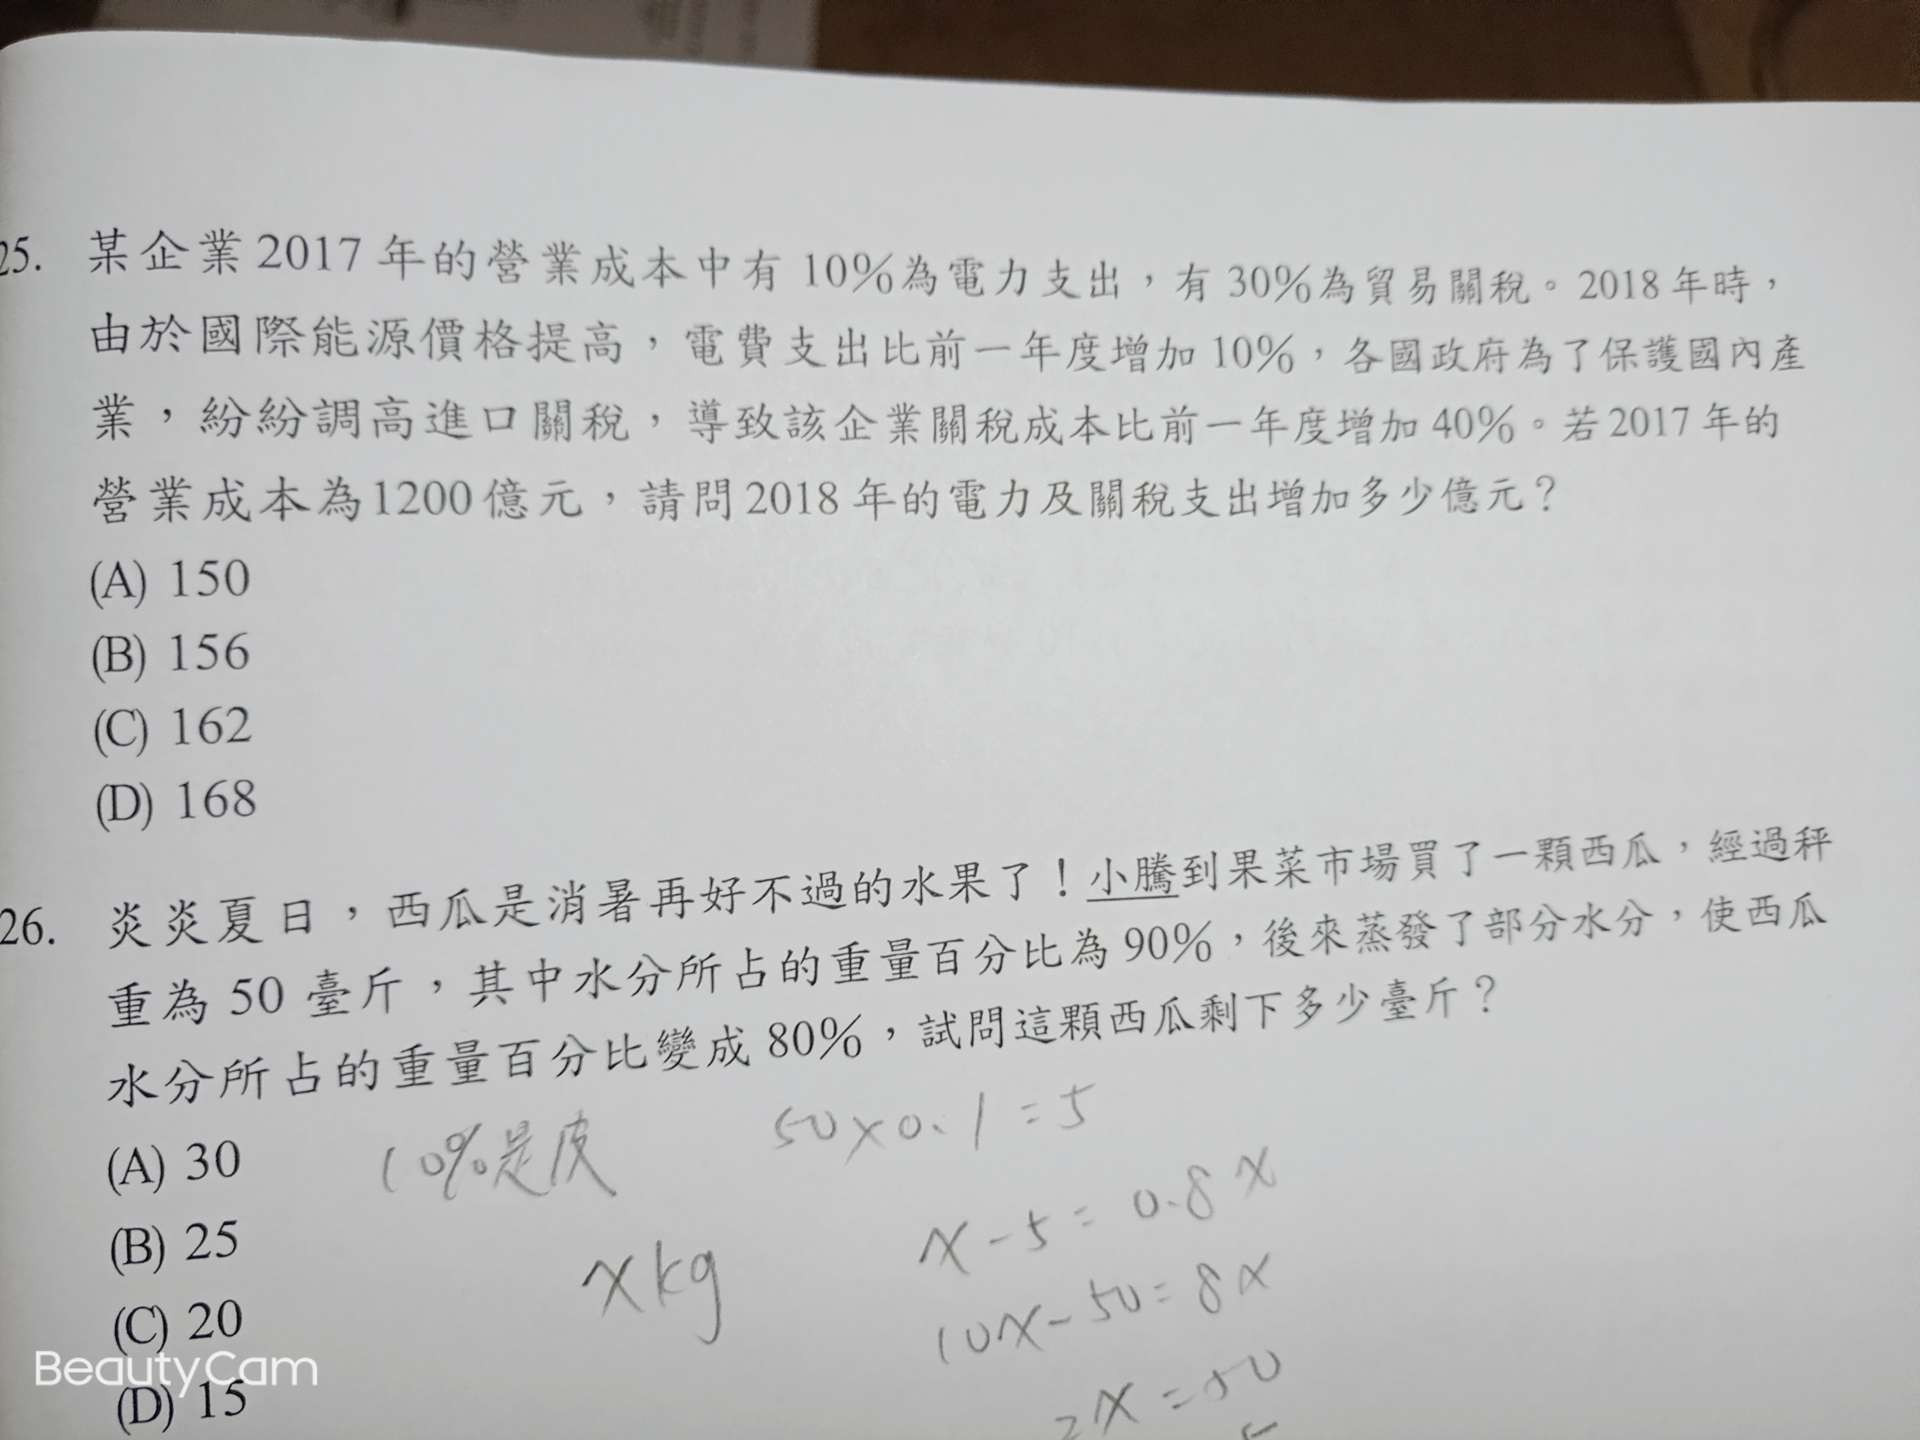 25. 某企業2017年的營業成本中有10%為電力支出，有30%為貿易關稅。2018年時，
由於國際能源價格提高，電費支出比前一年度增加10%，各國政府為了保護國內產
業，紛紛調高進口關稅，導致該企業關稅成本比前一年度增加40%。若2017年的
營業成本為1200億元，請問2018年的電力及關稅支出增加多少億元？
(A) 150
(B) 156
(C) 162
(D) 168
26. 炎炎夏日，西瓜是消暑再好不過的水果了！小騰到果菜市場買了一顆西瓜，經過秤
重為50臺斤，其中水分所占的重量百分比為90%，後來蒸發了部分水分，使西瓜
水分所占的重量百分比變成80%，試問這顆西瓜剩下多少臺斤？
10%是皮
50×0.1=5
(A) 30
x-5=0.8x
(B) 25
xkg
10x-50=8x
(C) 20
BeautyCam
2x=50
(D) 15